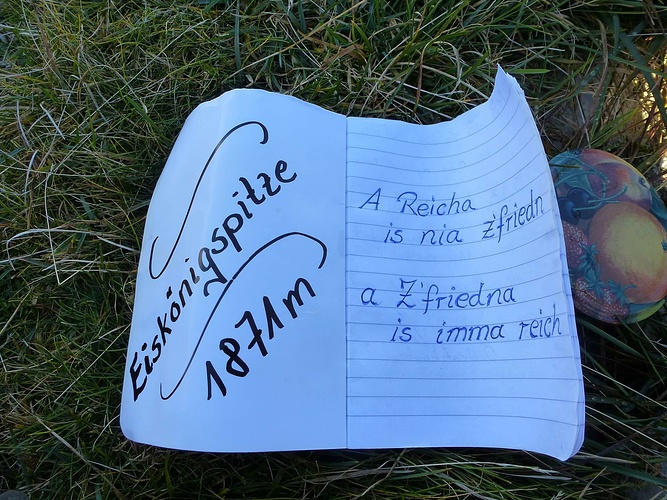 Eiskönigspitze
1871m
A Reicha
is nia z'friedn
a Z'friedna
is imma reich